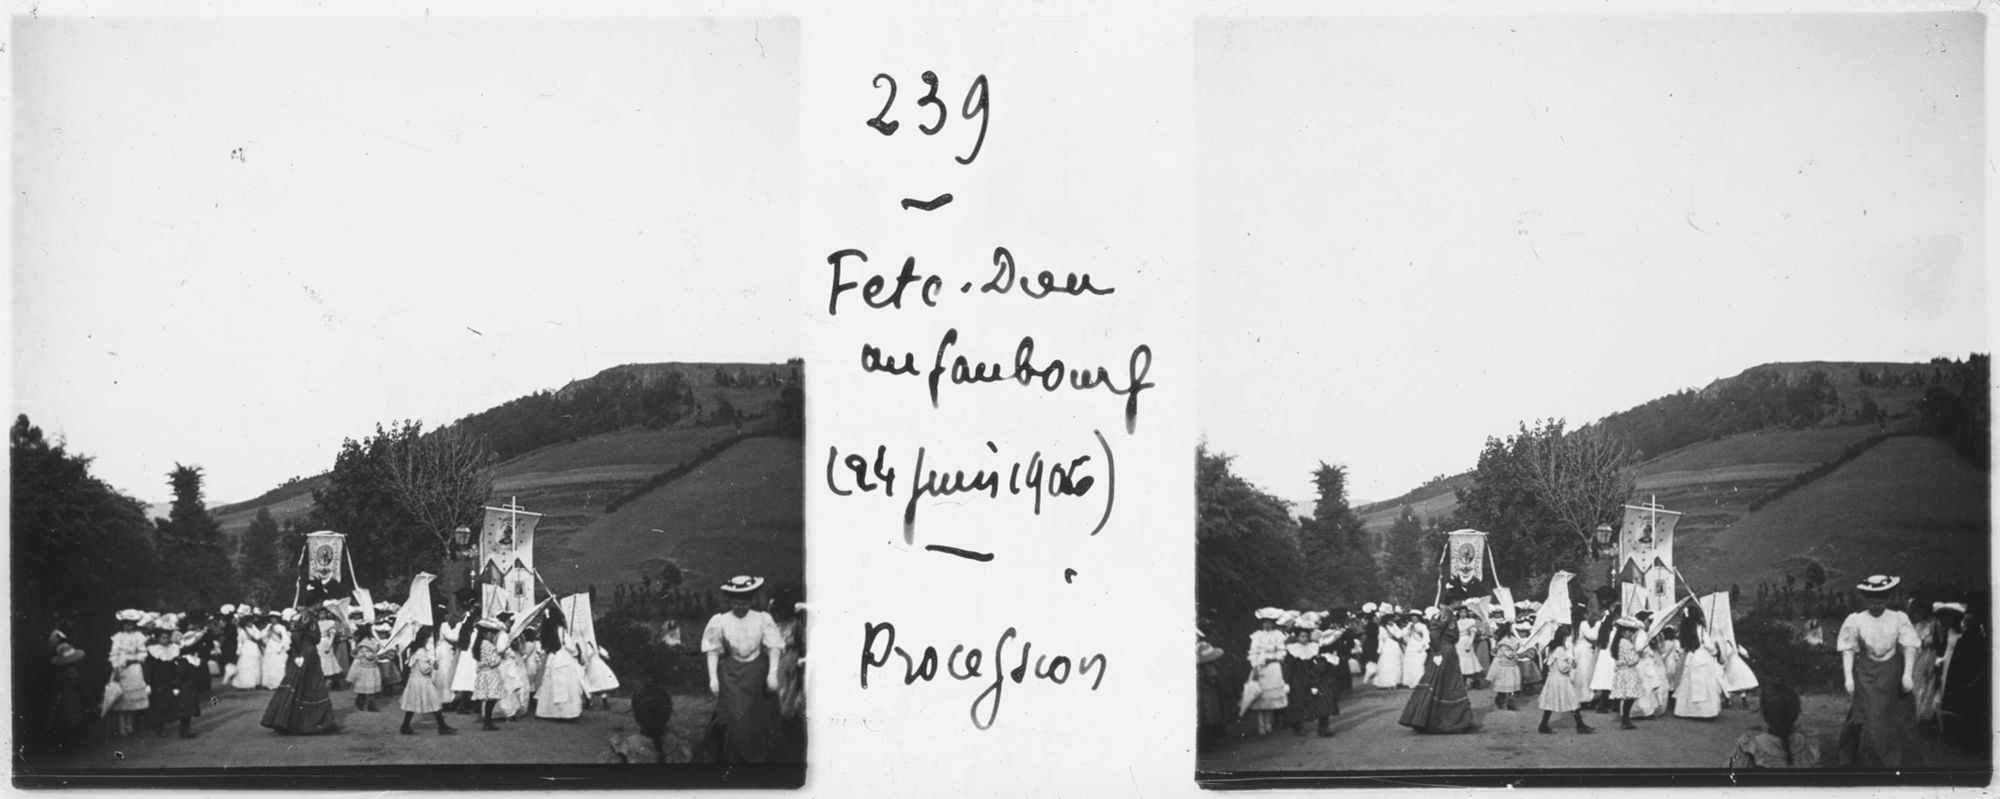 239
Fete-Dieu
au faubourg
(24 Juin 1906)
Procession